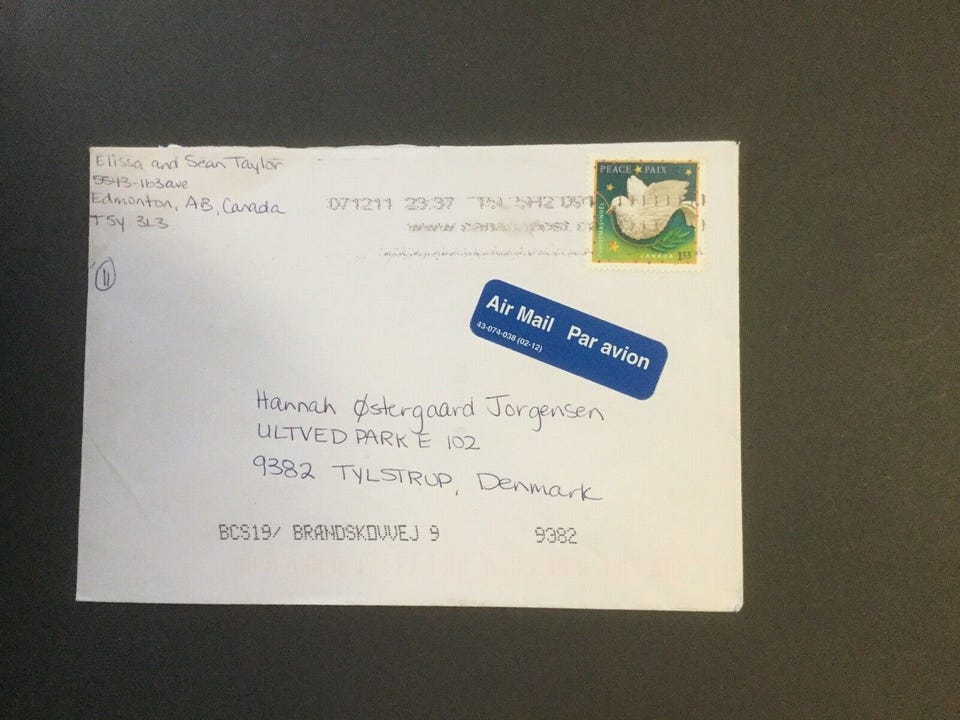 Elissa and Sean Taylor
5543-163ave
Edmonton, AB, Canada
T5Y 3L3
11
071211 23:37
PEACE PAIX
CANADA 1.55
Air Mail Par avion
43-074-038 (02-12)
Hannah Østergaard Jorgensen
ULTVED PARK E 102
9382 TYLSTRUP, Denmark
BCS19/ BRANDSKOVVEJ 9 9382